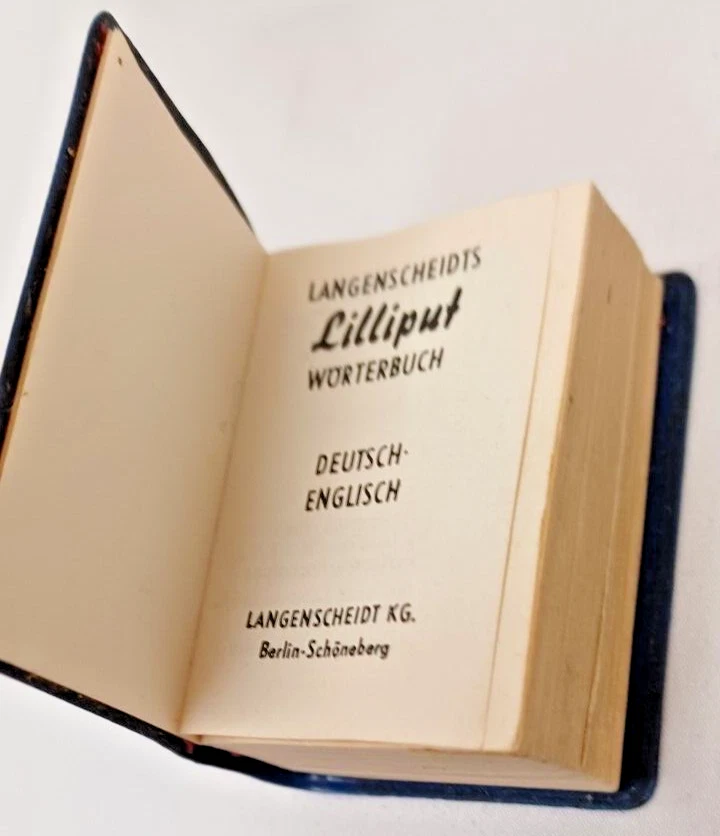 LANGENSCHEIDTS
Lilliput
WÖRTERBUCH
DEUTSCH-
ENGLISCH
LANGENSCHEIDT KG.
Berlin-Schöneberg